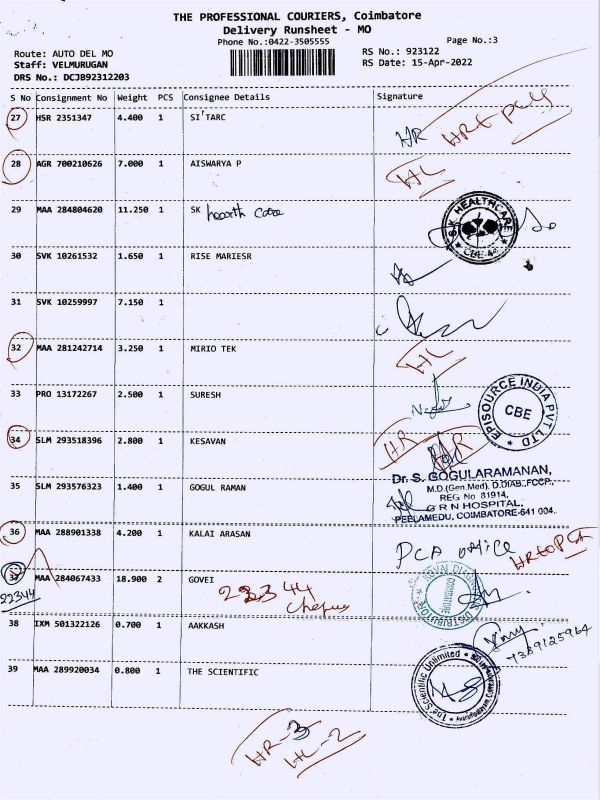 THE PROFESSIONAL COURIERS, Coimbatore
Delivery Runsheet - MO
Phone No.:0422-3505555
Page No.:3
Route: AUTO DEL MO
RS No.: 923122
Staff: VELMURUGAN
RS Date: 15-Apr-2022
DRS No.: DCJB92312203
S No Consignment No Weight PCS Consignee Details Signature
27 HSR 2351347 4.400 1 SI'TARC HR
28 AGR 700210626 7.000 1 AISWARYA P HL
29 MAA 284804620 11.250 1 SK
SK HEALTHCARE
CBE-44
30 SVK 10261532 1.650 1 RISE MARIESR
31 SVK 10259997 7.150 1
32 MAA 281242714 3.250 1 MIRIO TEK HL
33 PRO 13172267 2.500 1 SURESH
EPISOURCE INDIA PVT LTD
CBE
34 SLM 293518396 2.800 1 KESAVAN HR HR
Dr. S. GOGULARAMANAN,
M.D.(Gen.Med), D.DIAB.,FCCP.,
REG No 81914,
35 SLM 293576323 1.400 1 GOGUL RAMAN
G R N HOSPITAL,
PEELAMEDU, COIMBATORE-641 004.
36 MAA 288901338 4.200 1 KALAI ARASAN PCA office
37 MAA 284067433 18.900 2 GOVEI
22344
22344
COIMBATORE
DISTRIBUTOR
38 IXM 501322126 0.700 1 AAKKASH
39 MAA 289920034 0.800 1 THE SCIENTIFIC
The Scientific Unlimited
HR-3
HL-2